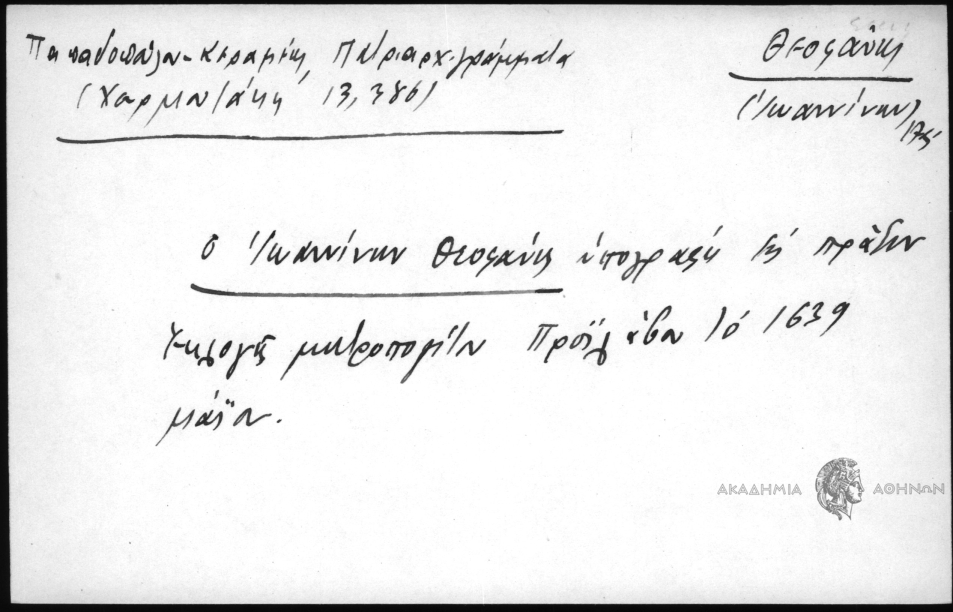 Παπαδοπούλου-Κεραμέως, Πατριαρχ. γράμματα
(Χαρμουζάκη 13, 386)
Θεοφάνης
(Ἰωαννίνων)
Ὁ Ἰωαννίνων Θεοφάνης ὑπογράφει τὴν πρᾶξιν
ἐκλογῆς μητροπολίτου Προϊλάβου τὸ 1639
μάϊον.
ΑΚΑΔΗΜΙΑ ΑΘΗΝΩΝ